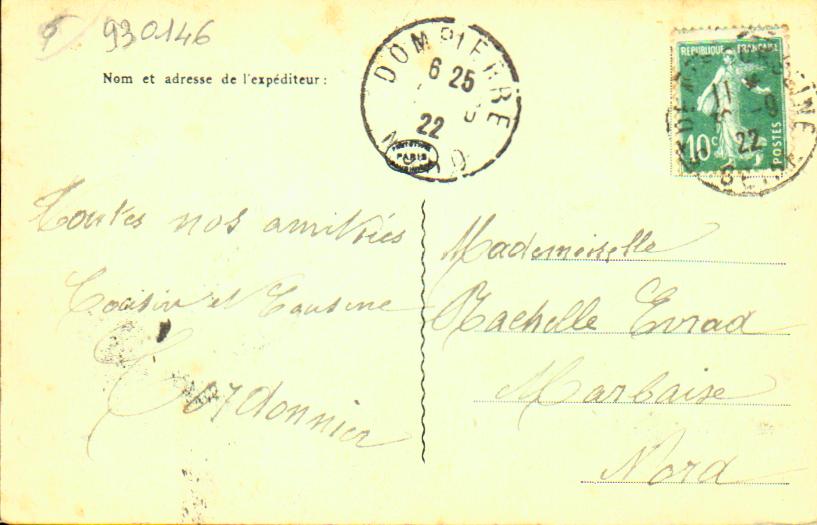 930146
Nom et adresse de l'expéditeur :
DOMPIERRE
6 25
22
NORD
PARIS
REPUBLIQUE FRANÇAISE
10c
POSTES
11
22
SEINE
Toutes nos amitiées
Cousin et Cousine
Cordonnier
Mademoiselle
Rachelle Evrad
Marbaise
Nord